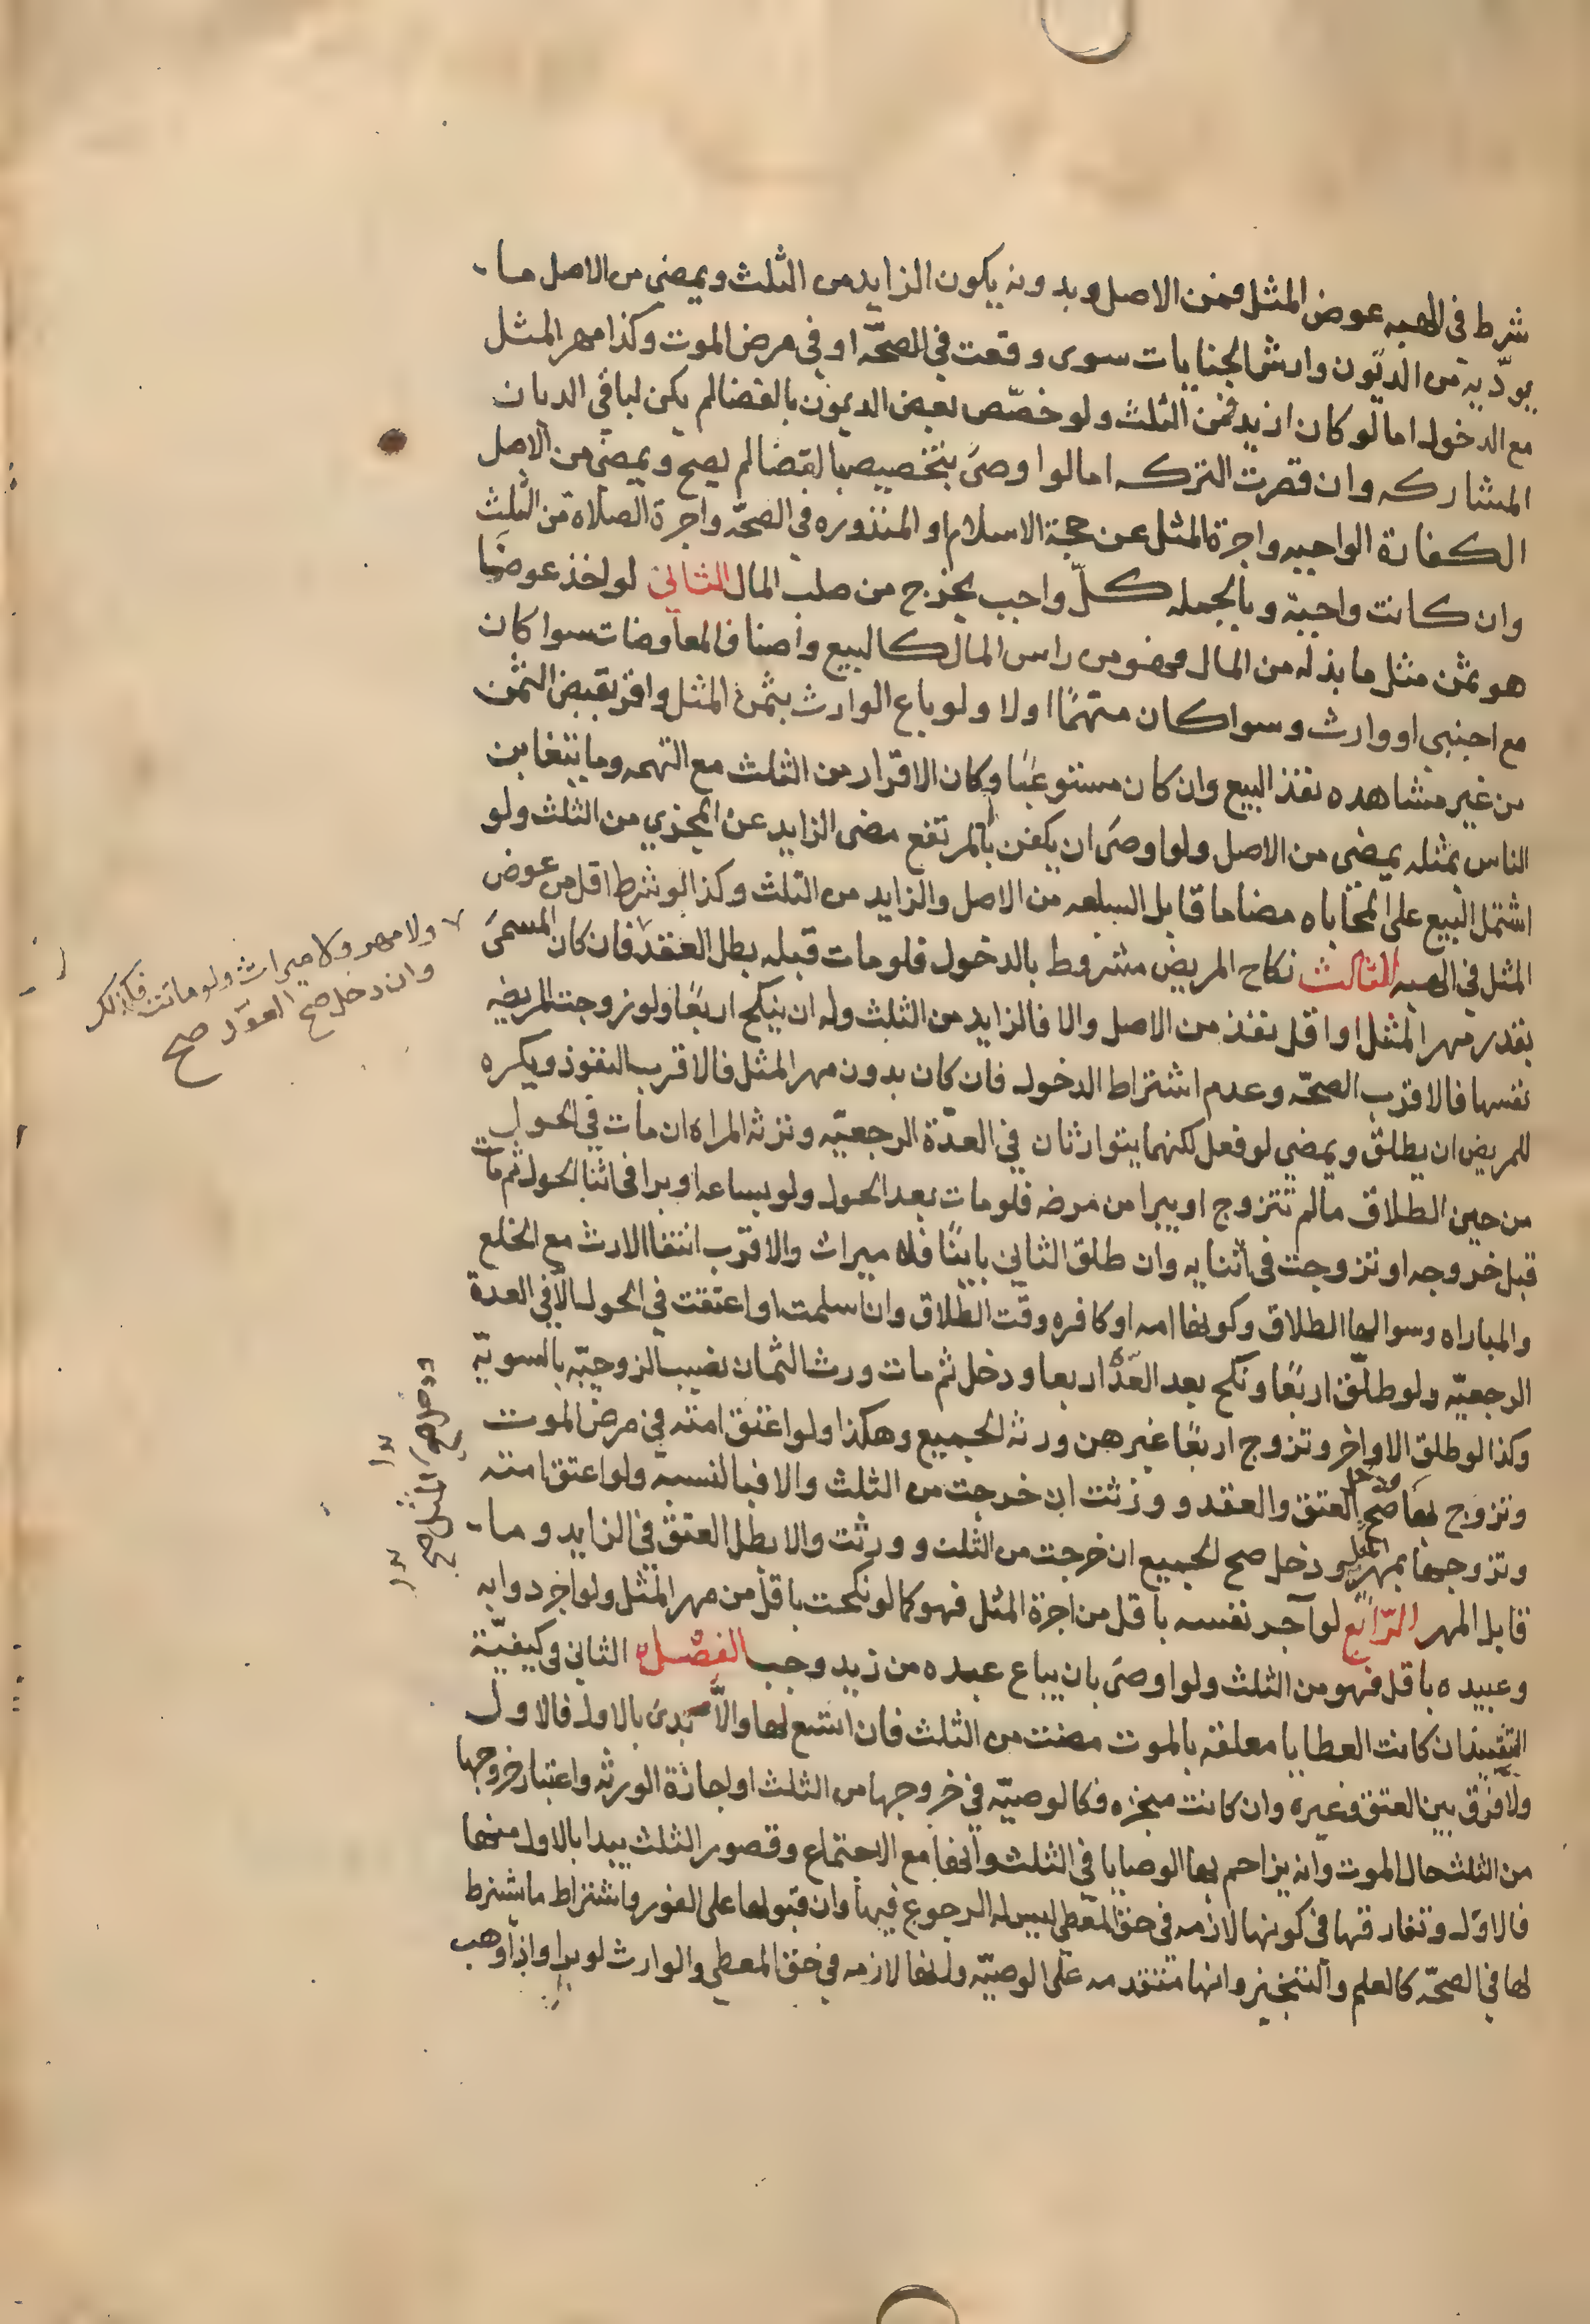 شرط فى الهبه عوض المثل فمن الاصل وبدونه يكون الزايد من الثلث ويمضى من الاصل ما
يودّيه من الديّون وارش الجنايات سوى وقعت فى الصحّه او فى مرض الموت وكذا مهر المثل
مع الدخول اما لو كان ازيد فمن الثلث ولو خصّص بعض الديون بالقضا لم يكن لباقى الديان
المشاركه وان قصرت التركه اما لو اوصىَ بتخصيصها لقضا لم يصح ويمضى من الاصل
الكفارة الواجبه واجرة المثل عن حجة الاسلام او المنذوره فى الصحّه واجرة الصلاة من الثلث
وان كانت واجبة وبالجمله كلّ واجب يخرج من صلب المال الثاني لو اخذ عوضًا
هو ثمن مثل ما بذله من المال فهو من راس المال كالبيع واصناف المعاوضات سوا كان
مع اجنبي او وارث وسوا كان متهمًا اولا ولو باع الوارث بثمن المثل واقرّ بقبض الثمن
من غير مشاهده نفذ البيع وان كان مستوعبًا وكان الاقرار من الثلث مع التهمه وما يتغابن
الناس بمثله يمضى من الاصل ولو اوصىَ ان يكفن بالمرتفع مضى الزايد عن المجزي من الثلث ولو
اشتمل البيع على المحاباه مضا ما قابل السلعه من الاصل والزايد من الثلث وكذا لو شرط اقل من عوض
المثل في الهبه الثالث نكاح المريض مشروط بالدخول فلو مات قبله بطل العقد فان كان المسمىَ
ولا مهر ولا ميراث ولو ماتت فكذلك
وان دخل صح العقد صح
بقدر مهر المثل او اقل نفذ من الاصل والا فالزايد من الثلث وله ان ينكح اربعًا ولو زوجت المريضه
نفسها فالاقرب الصحّه وعدم اشتراط الدخول فان كان بدون مهر المثل فالاقرب النفوذ ويكره
للمريض ان يطلق ويمضى لو فعل لكنهما يتوارثان في العدّة الرجعيّه وترثه المراه ان مات في الحول
من حين الطلاق ما لم تتزوج او يبرا من مرضه فلو مات بعد الحول ولو بساعه او برا فى اثنا الحول ثم مات
قبل خروجه او تزوجت فى اثنايه وان طلق الثاني باينًا فلا ميراث والاقرب انتفا الارث مع الخلع
والمباراه وسوالها الطلاق وكونها امه او كافره وقت الطلاق وان اسلمت او اعتقت في الحول الا في العدة
الرجعيّه ولو طلّق اربعًا ونكح بعد العدّه اربعا ودخل ثم مات ورث الثمان نصيب الزوجيّه بالسويّه
وكذا لو طلق الاواخر وتزوج اربعًا غيرهن ورثه الجميع وهكذا ولو اعتق امته في مرض الموت
وتزوج بها ودخل صح العتق والعقد وورثت ان خرجت من الثلث والا فبالنسبه ولو اعتق امته
ودخل صح
وتزوجها بمهر المثل ودخل صح الجميع ان خرجت من الثلث وورثت والا بطل العتق في الزايد وما
المثل صح
قابل المهر الرّابع لو آجر نفسه باقل من اجرة المثل فهو كما لو نكحت باقل من مهر المثل ولو اجر دوابه
وعبيده باقل فهو من الثلث ولو اوصىَ بان يباع عبده من زيد وجب الفصل الثانى فى كيفيّة
التنفيذ ان كانت العطايا معلقة بالموت مضت من الثلث فان اتسع لها والّا بُدىَ بالاول فالاول
ولا فرق بين العتق وغيره وان كانت منجزه فكالوصيّه في خروجها من الثلث او اجازة الورثه واعتبار خروجها
من الثلث حال الموت وانه يزاحم بها الوصايا في الثلث وانها مع الاجتماع وقصور الثلث يبدا بالاول منها
فالاوّل وتفارقها فى كونها لازمه فى حق المعطي ليس له الرجوع فيها وان قبولها على الفور واشتراط ما شرط
لها في الصحّه كالعلم والتنجيز وانها متقدمه على الوصيّه وانها لازمه في حق المعطي والوارث لو برا واذا وهب